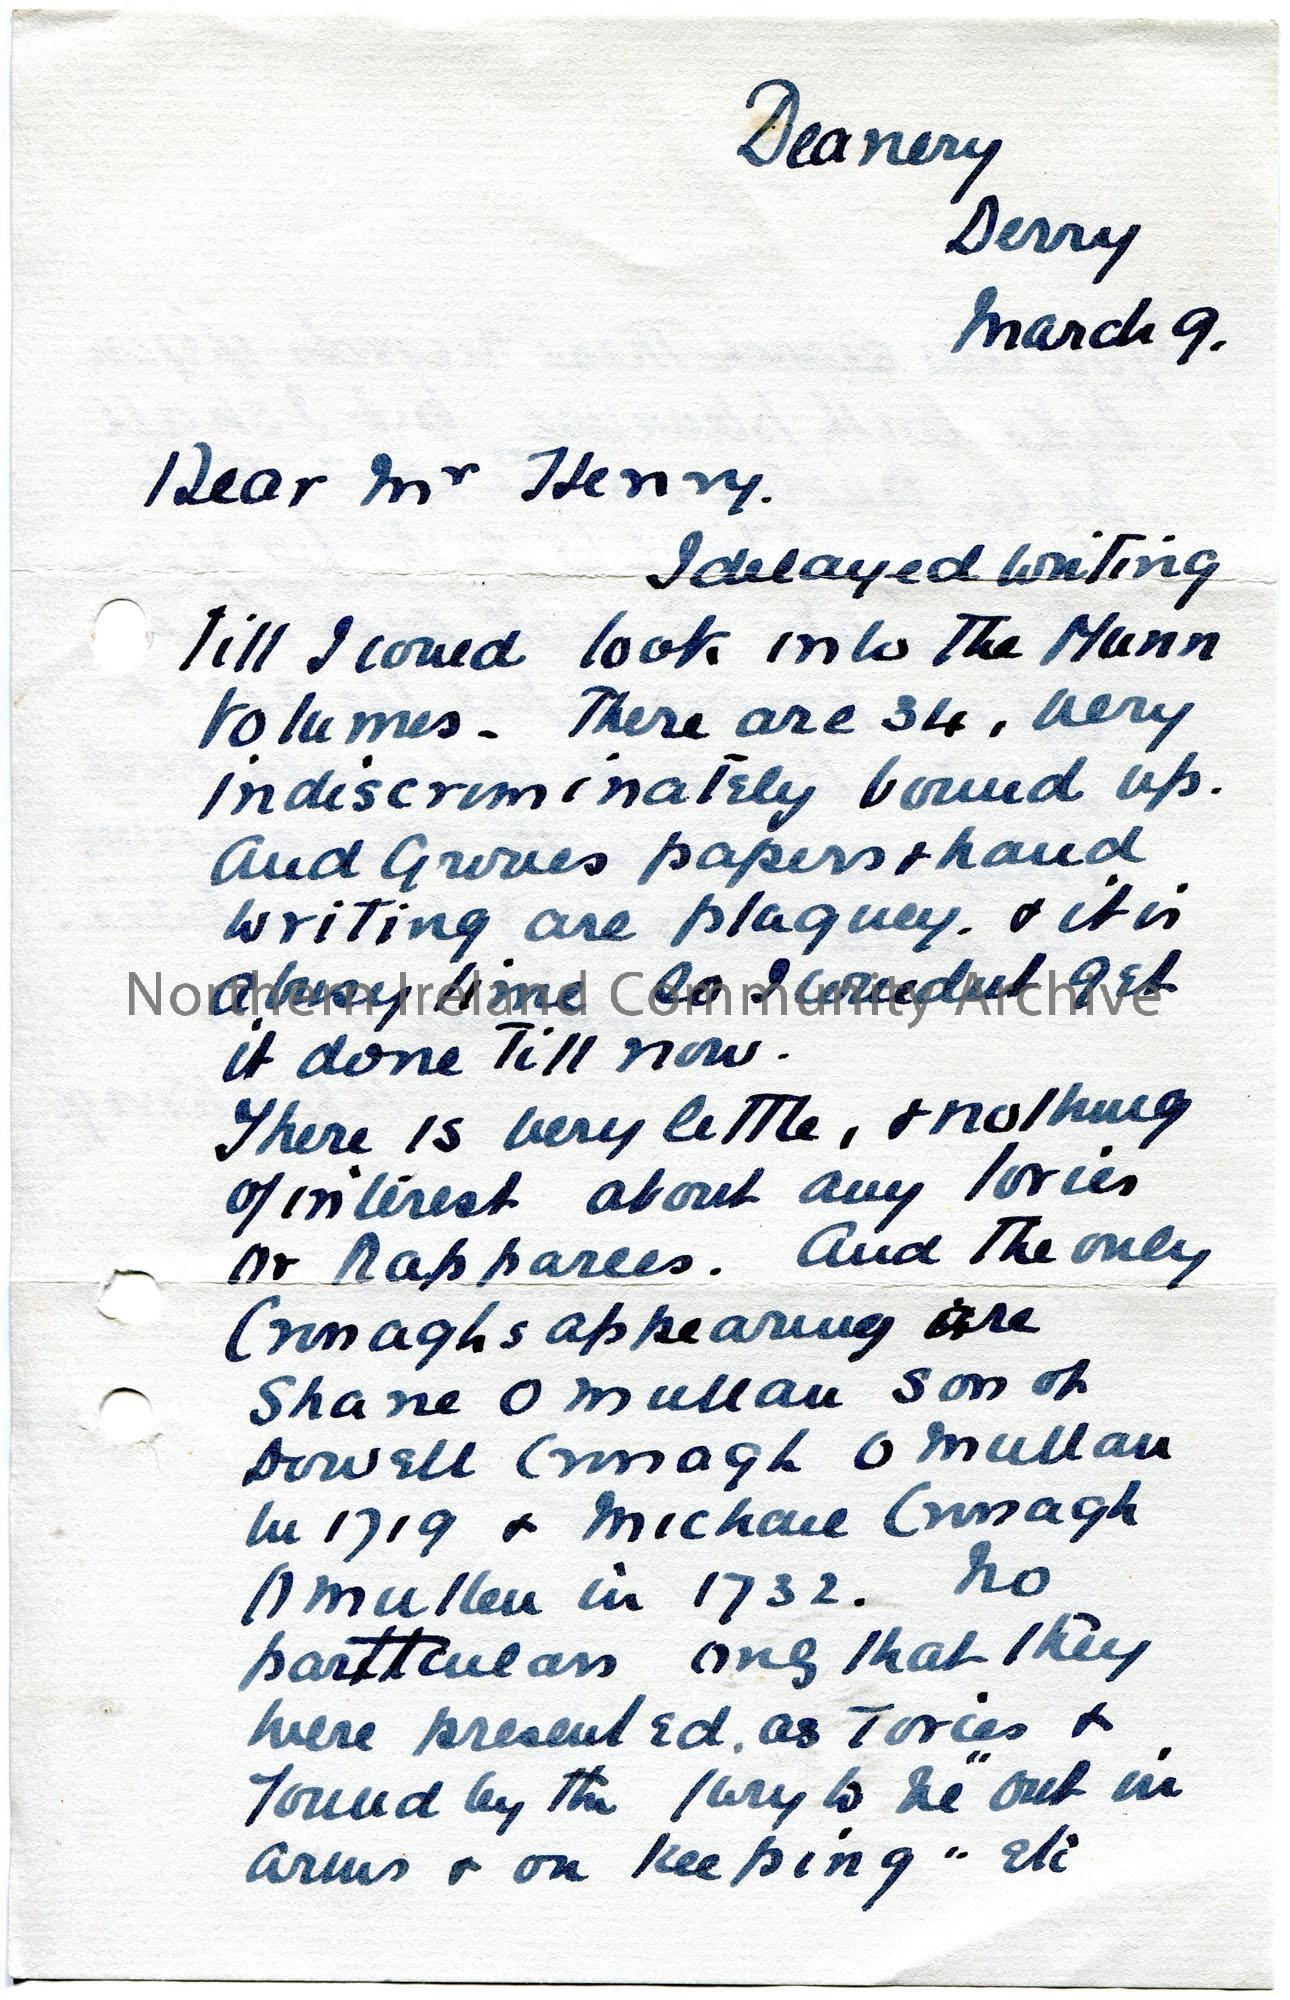 Deanery
Derry
March 9.
Dear Mr Henry.
I delayed writing
till I could look into the Munn
Volumes. There are 34, very
indiscriminately bound up.
And Groves papers & hand
writing are plaguey. & it is
a busy time so I couldnt get
it done till now.
Northern Ireland Community Archive
There is very little, & nothing
of interest about any tories
or Rapparees. And the only
Cronaghs appearing are
Shane O Mullan son of
Dowell Cronagh O Mullan
in 1719 & Michael Cronagh
O Mullen in 1732. No
particulars only that they
were presented as Tories &
found by the Jury to be "out in
arms & on keeping" etc